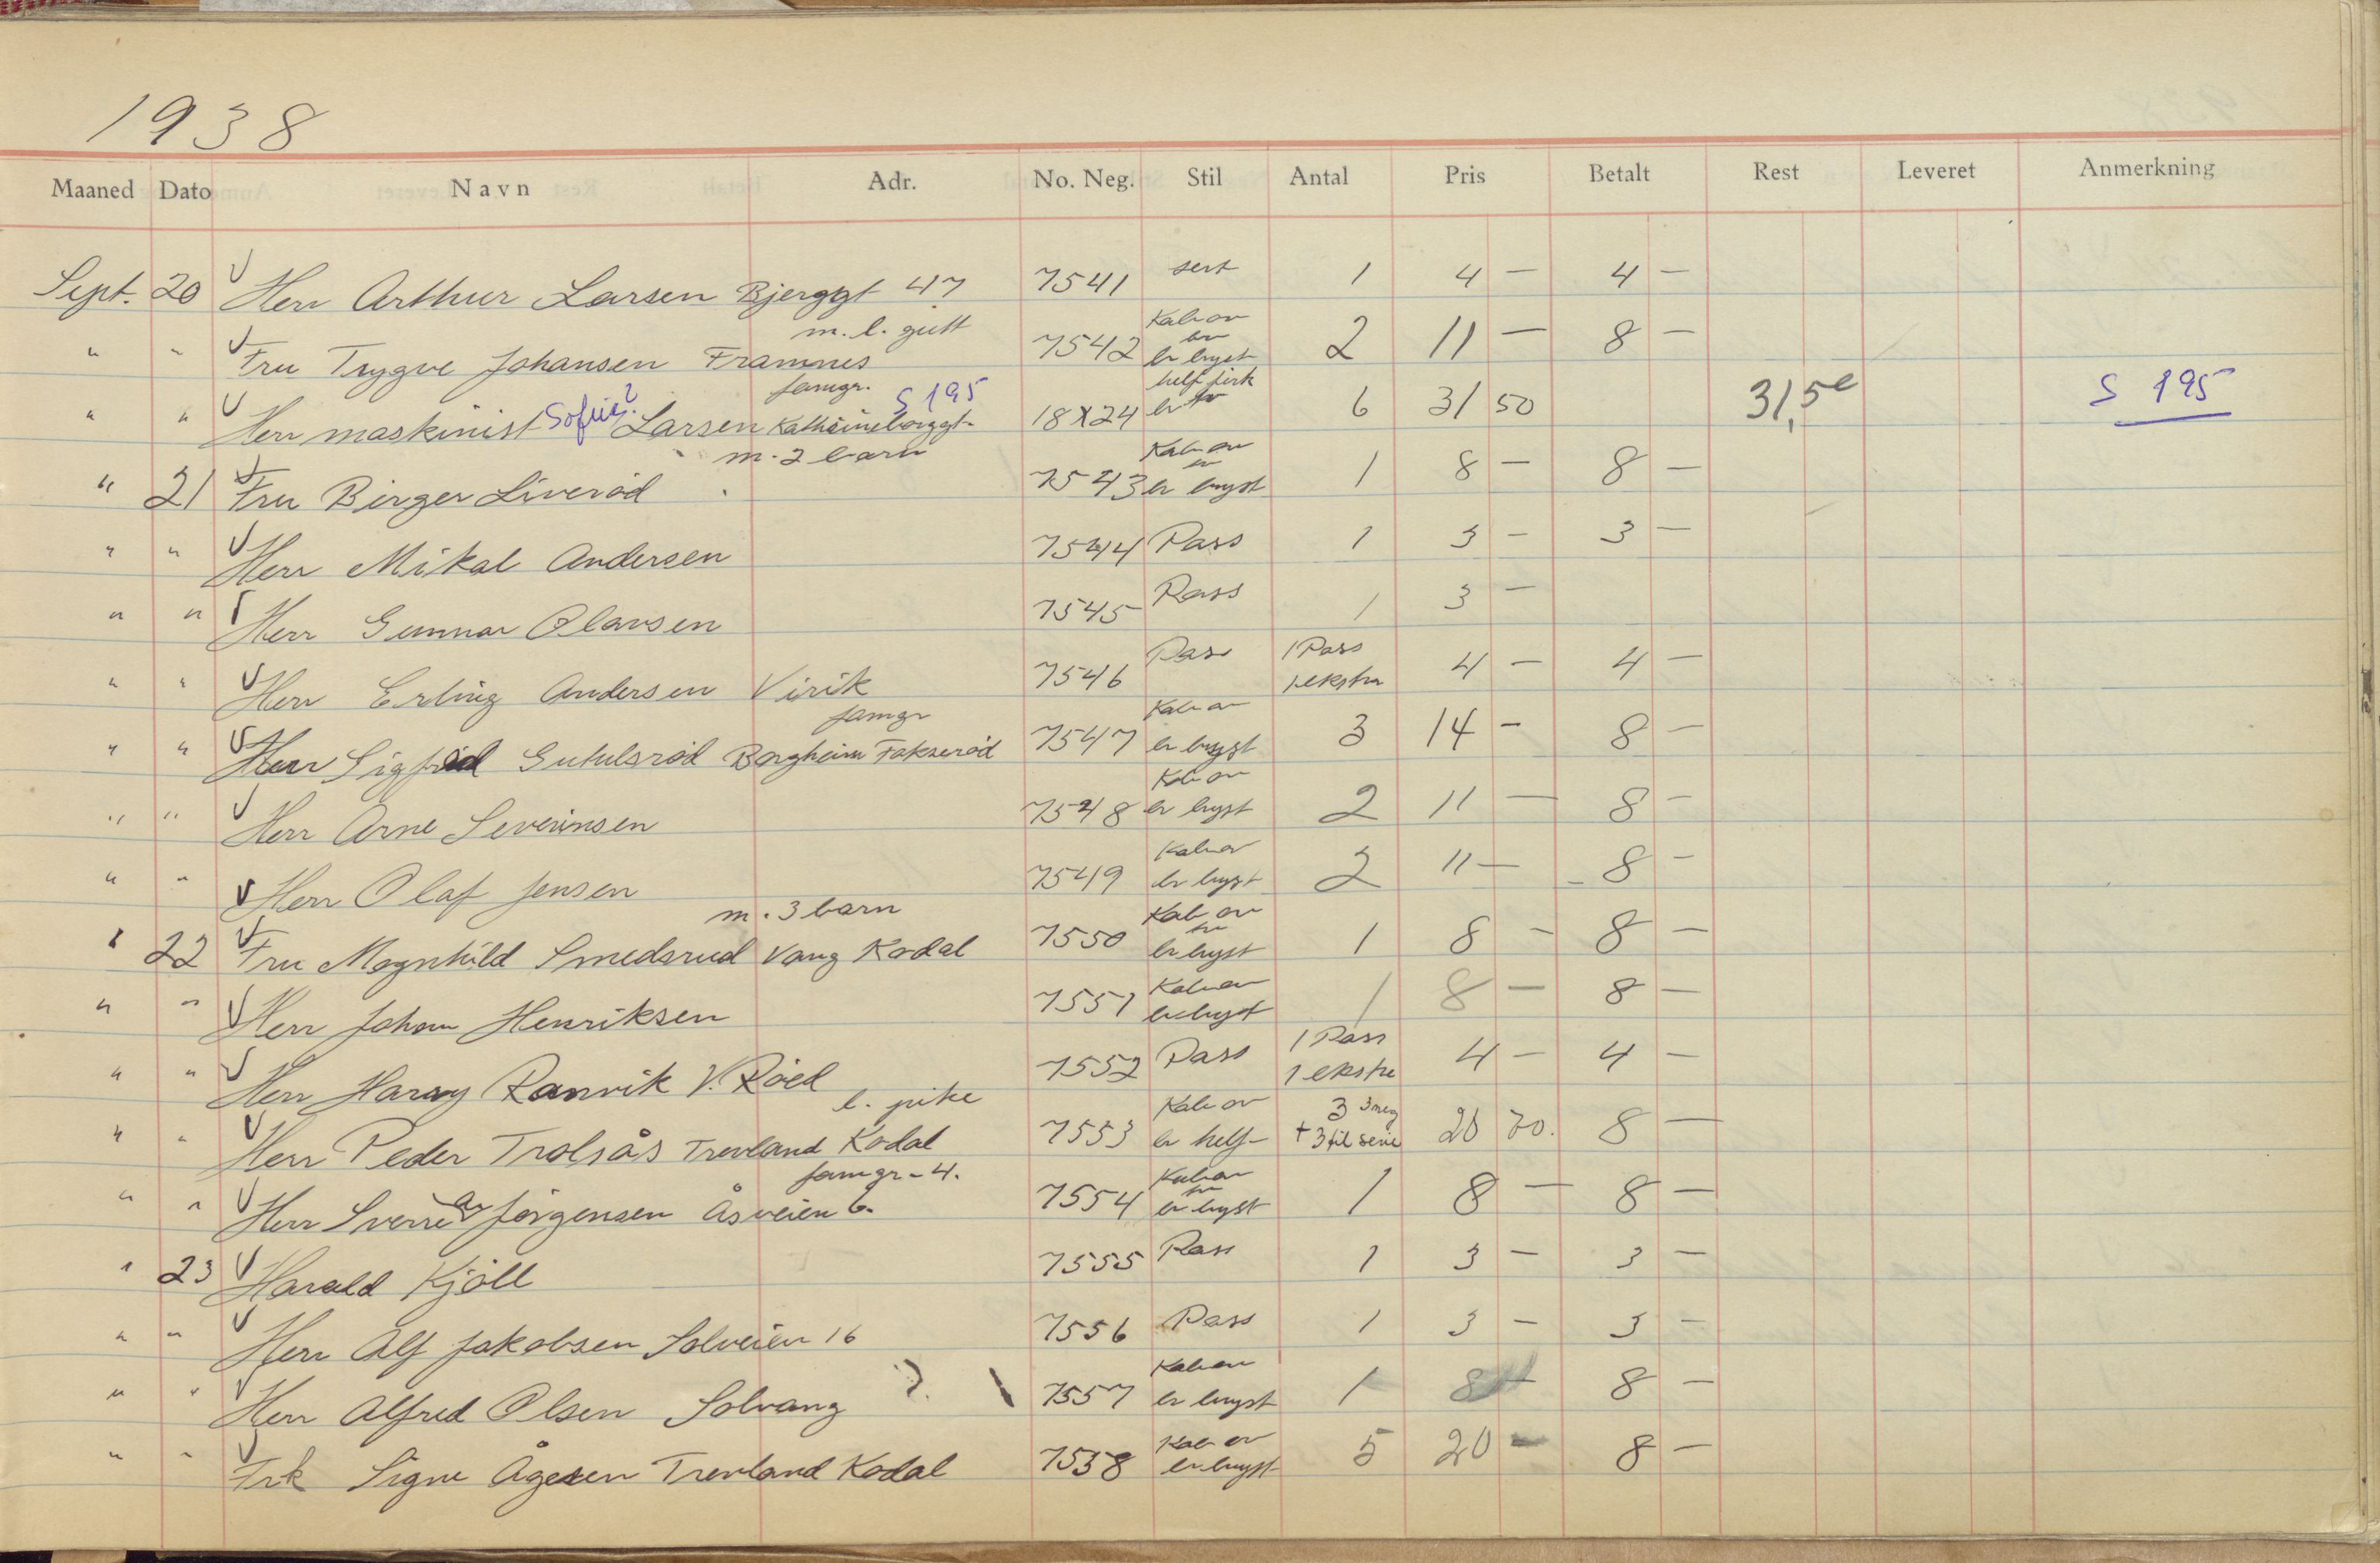 1938
Maaned Dato Navn Adr. No. Neg. Stil Antal Pris Betalt Rest Leveret Anmerkning
Sept. 20 Herr Arthur Larsen Bjerggt 47 7541 sert 1 4 — 4 —
m. l. gutt Kab ov
" " Fru Trygve Johansen Framnes 7542 br bryst 2 11 — 8 —
famgr. S 195 helf
" " Herr maskinist Sofus? Larsen Kathrineborggt. 18X24 br 6 31 50 31,50 S 195
m. 2 barn Kab ov
" 21 Fru Birger Liveröd 7543 br bryst 1 8 — 8 —
" " Herr Mikal Andersen 7544 Pass 1 3 — 3 —
" " Herr Gunnar Olavsen 7545 Pass 1 3 —
1 Pass
" " Herr Erling Andersen Virik 7546 Pass 1 ekstra 4 — 4 —
famgr Kab ov
" " Herr Sigfrid Gutulsröd Borgheim Fokseröd 7547 br bryst 3 14 — 8 —
Kab ov
" " Herr Arne Severinsen 7548 br bryst 2 11 — 8 —
Kab ov
" " Herr Olaf Jensen 7549 br bryst 2 11 — 8 —
m. 3 barn Kab ov
" 22 Fru Magnhild Smedsrud Vang Kodal 7550 br bryst 1 8 — 8 —
Kab ov
" " Herr Johan Henriksen 7551 br bryst 1 8 — 8 —
1 Pass
" " Herr Harry Ranvik V. Röed 7552 Pass 1 ekstra 4 — 4 —
l. pike Kab ov 3 3 neg
" " Herr Peder Trolsås Trevland Kodal 7553 br helf + 3 til serie 20 70. 8 —
famgr - 4. Kab ov
" " Herr Sverre A Jörgensen Åsveien 6. 7554 br bryst 1 8 — 8 —
" 23 Harald Kjöll 7555 Pass 1 3 — 3 —
" " Herr Alf Jakobsen Solveien 16 7556 Pass 1 3 — 3 —
Kab ov
" " Herr Alfred Olsen Solvang ?. 7557 br bryst 1 8 — 8 —
Kab ov
" " Frk Signe Ågesen Trevland Kodal 7558 br bryst 5 20 — 8 —